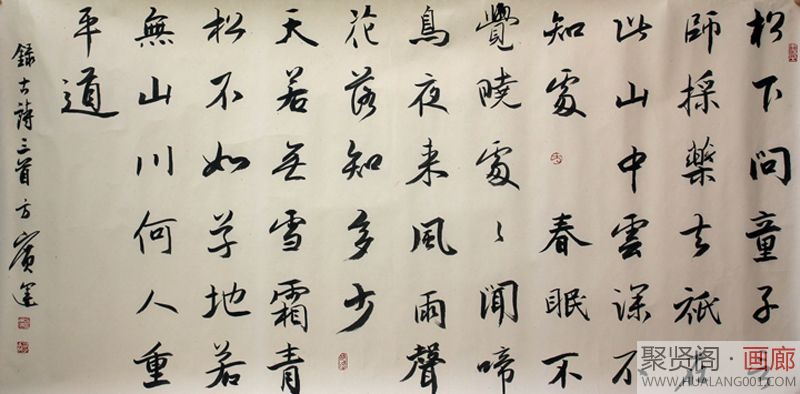 松下問童子言
師採藥去祇在
此山中雲深不
知處 春眠不
覺曉處〻聞啼
鳥夜来風雨聲
花落知多少
天若无雪霜青
松不如草地若
無山川何人重
平道
錄古詩三首方賓
聚贤阁·画廊
WWW.HUALANG001.COM